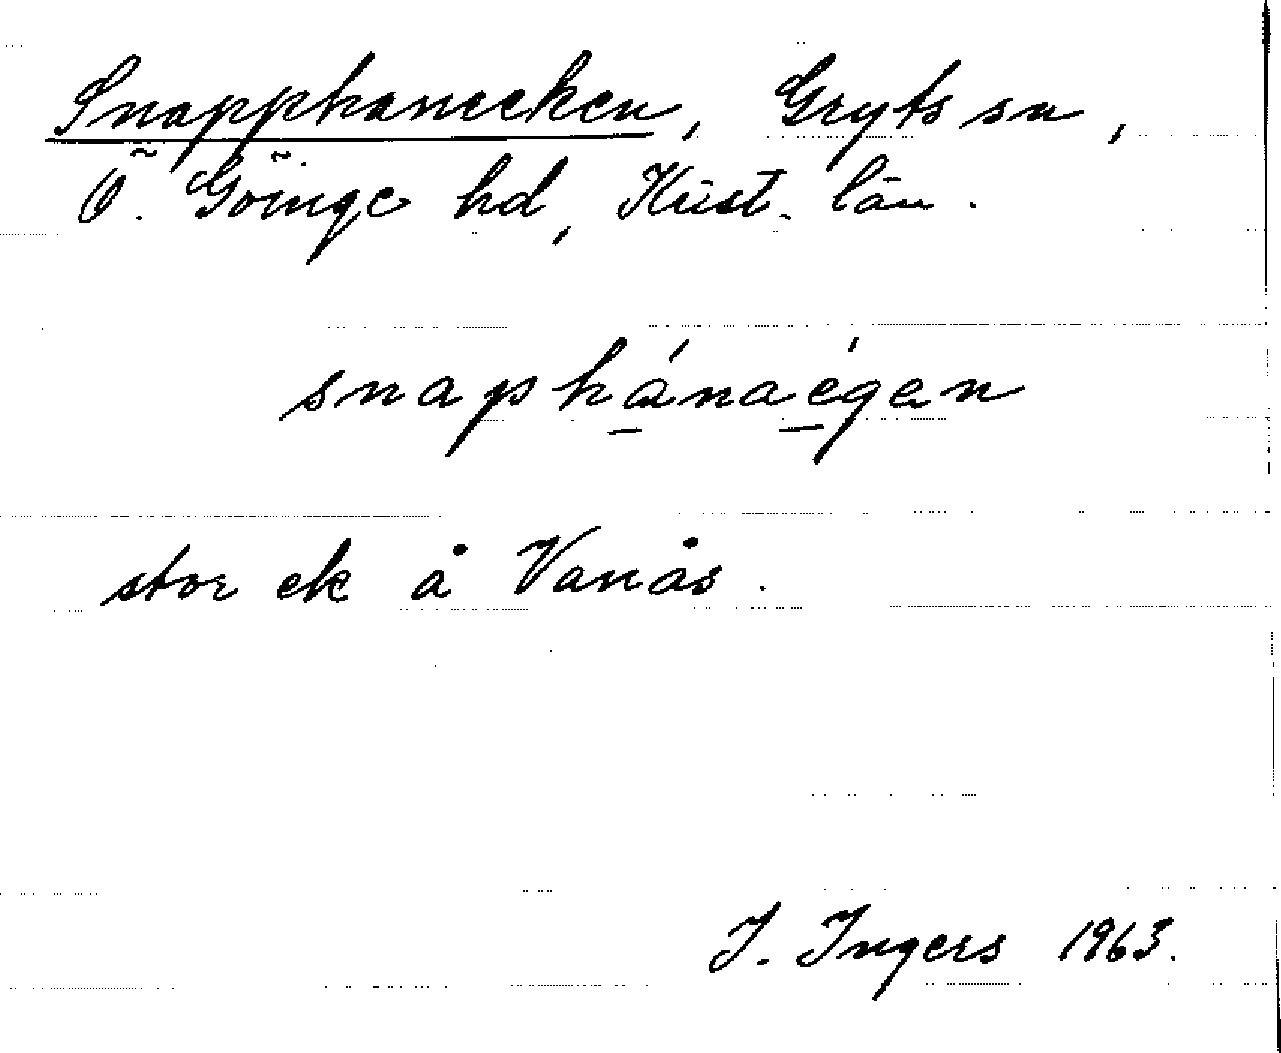 Snapphaneeken, Gryts sn,
Ö. Göinge hd, Krist. län.
snaphánaégan
stor ek å Vanås.
I. Ingers 1963.